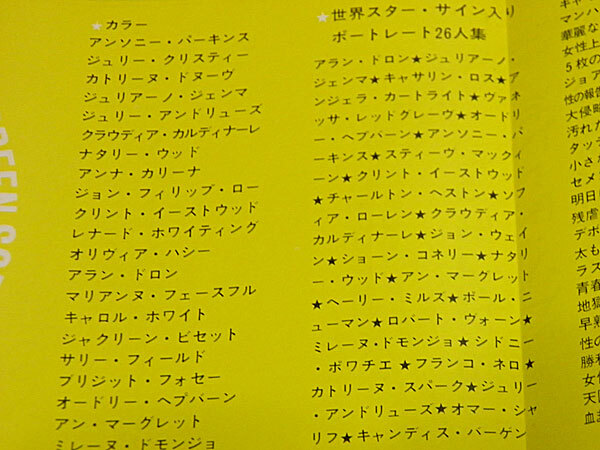 ★カラー
アンソニー・パーキンス
ジュリー・クリスティー
カトリーヌ・ドヌーヴ
ジュリアーノ・ジェンマ
ジュリー・アンドリューズ
クラウディア・カルディナーレ
ナタリー・ウッド
アンナ・カリーナ
ジョン・フィリップ・ロー
クリント・イーストウッド
レナード・ホワイティング
オリヴィア・ハシー
アラン・ドロン
マリアンヌ・フェースフル
キャロル・ホワイト
ジャクリーン・ビセット
サリー・フィールド
ブリジット・フォセー
オードリー・ヘプバーン
アン・マーグレット
ミレーヌ・ドモンジョ
★世界スター・サイン入り
ポートレート26人集
アラン・ドロン★ジュリアーノ・
ジェンマ★キャサリン・ロス★ア
ンジェラ・カートライト★ヴァネ
ッサ・レッドグレーヴ★オードリ
ー・ヘプバーン★アンソニー・パ
ーキンス★スティーヴ・マックィ
ーン★クリント・イーストウッド
★チャールトン・ヘストン★ソフ
ィア・ローレン★クラウディア・
カルディナーレ★ジョン・ウェイ
ン★ショーン・コネリー★ナタリ
ー・ウッド★アン・マーグレット
★ヘーリー・ミルズ★ポール・ニ
ューマン★ロバート・ヴォーン★
ミレーヌ・ドモンジョ★シドニー
・ポワチエ★フランコ・ネロ★
カトリーヌ・スパーク★ジュリー
・アンドリュース★オマー・シャ
リフ★キャンディス・バーゲン
マンハ
華麗な
女性上
5枚の
ジョア
性の報告
大侵略
汚れた
タッチ
小さな
セメン
明日
残虐
デボ
太も
ラス
青春
地獄
早熟
性の
勝利
女性
天国
血ま